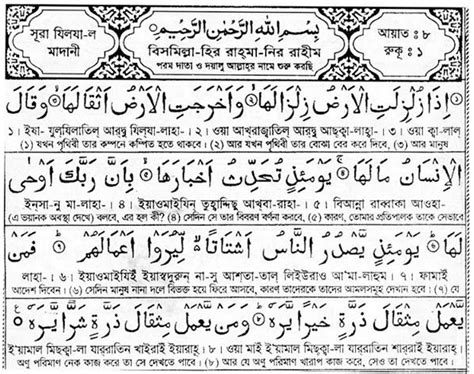 সূরা যিলযা-ল
মাদানী
بِسْمِ اللهِ الرَّحْمٰنِ الرَّحِيْمِ
বিসমিল্লা-হির রাহ্‌মা-নির রাহীম
পরম দাতা ও দয়ালু আল্লাহ্‌র নামে শুরু করছি
আয়াত : ৮
রুকূ : ১
اِذَا زُلْزِلَتِ الْاَرْضُ زِلْزَالَهَا ۙ وَاَخْرَجَتِ الْاَرْضُ اَثْقَالَهَا ۙ وَقَالَ
১। ইযা- যুল্‌যিলাতিল্ আর্‌দ্বু যিল্‌যা-লাহা-। ২। ওয়া আখ্‌রাজ্বাতিল্ আর্‌দ্বু আছ্‌ক্বা-লাহা-। ৩। ওয়া ক্বা-লাল্
(১) যখন পৃথিবী তার কম্পনে কম্পিত হতে থাকবে। (২) আর যখন পৃথিবী তার বোঝা বের করে দিবে, (৩) আর মানুষ
الْاِنْسَانُ مَا لَهَا ۚ يَوْمَئِذٍ تُحَدِّثُ اَخْبَارَهَا ۙ بِاَنَّ رَبَّكَ اَوْحٰى
ইন্‌সা-নু মা-লাহা-। ৪। ইয়াওমায়িযিন্ তুহাদ্দিছু আখ্‌বা-রাহা-। ৫। বিআন্না রাব্বাকা আওহা-
(এ ভয়ানক অবস্থা দেখে) বলবে, এর হল কী? (৪) সেদিন সে তার বিবরণ বর্ণনা করবে, (৫) কারণ, তোমার প্রতিপালক তাকে সেভাবে
لَهَا ؕ يَوْمَئِذٍ يَّصْدُرُ النَّاسُ اَشْتَاتًا ۙ لِّيُرَوْا اَعْمَالَهُمْ ؕ فَمَنْ
লাহা-। ৬। ইয়াওমায়িযিঁই ইয়াছ্‌দুরুন্ না-সু আশ্‌তা-তাল্ লিইউরাও আ'মা-লাহুম। ৭। ফামাই
আদেশ দিবেন। (৬) সেদিন মানুষ নানা দলে বিভক্ত হয়ে ফিরে আসবে, কারণ তাদেরকে তাদের আমলসমূহ দেখান হবে। (৭) যে
يَّعْمَلْ مِثْقَالَ ذَرَّةٍ خَيْرًا يَّرَهٗ ؕ وَمَنْ يَّعْمَلْ مِثْقَالَ ذَرَّةٍ شَرًّا يَّرَهٗ
ই'য়ামাল্ মিছ্‌ক্বা-লা যার্‌রাতিন্ খাইরাই ইয়ারাহূ। ৮। ওয়া মাই ই'য়ামাল্ মিছ্‌ক্বা-লা যার্‌রাতিন্ শার্‌রাই ইয়ারাহূ।
অণু পরিমাণ নেক কাজ করে তা সে দেখতে পাবে। (৮) আর যে অণু পরিমাণ খারাপ কাজ করে, সেও তা দেখতে পাবে।